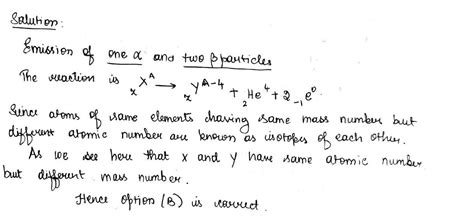 Solution:
Emission of one α and two β particles
The reaction is ₓX^A → ₓY^A-4 + ₂He⁴ + 2 ₋₁e⁰
Since atoms of same elements having same mass number but
different atomic number are known as isotopes of each other.
As we see here that X and Y have same atomic number
but different mass number.
Hence option (B) is correct.